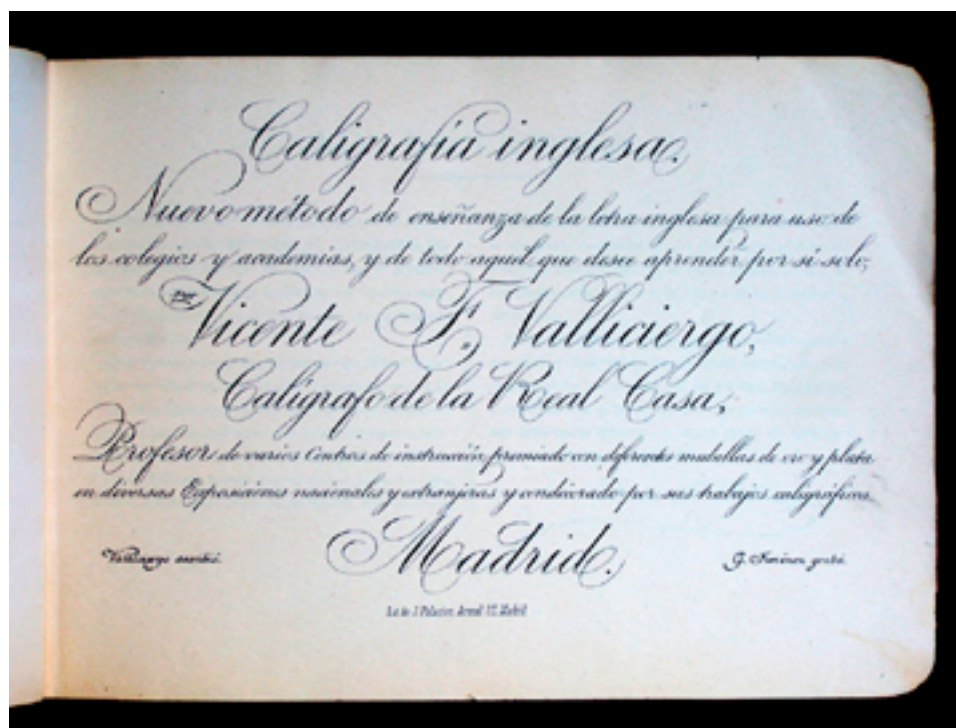 Caligrafía inglesa.
Nuevo método de enseñanza de la letra inglesa para uso de
los colegios y academias, y de todo aquel que desee aprender por sí solo,
por
Vicente F. Valliciergo,
Calígrafo de la Real Casa,
Profesor de varios Centros de instrucción, premiado con diferentes medallas de oro y plata
en diversas Exposiciones nacionales y extranjeras y condecorado por sus trabajos caligráficos.
Madrid.
Valliciergo escribió. G. grabó.
Lit. de J. Palacios. Arenal 27. Madrid